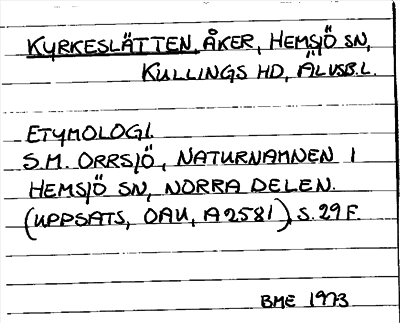 KYRKESLÄTTEN, ÅKER, HEMSJÖ SN,
KULLINGS HD, ÄLVSB.L.
ETYMOLOGI.
S.M. ORRSJÖ, NATURNAMNEN I
HEMSJÖ SN, NORRA DELEN.
(UPPSATS, OAU, A 2581), S. 29 F.
BME 1973